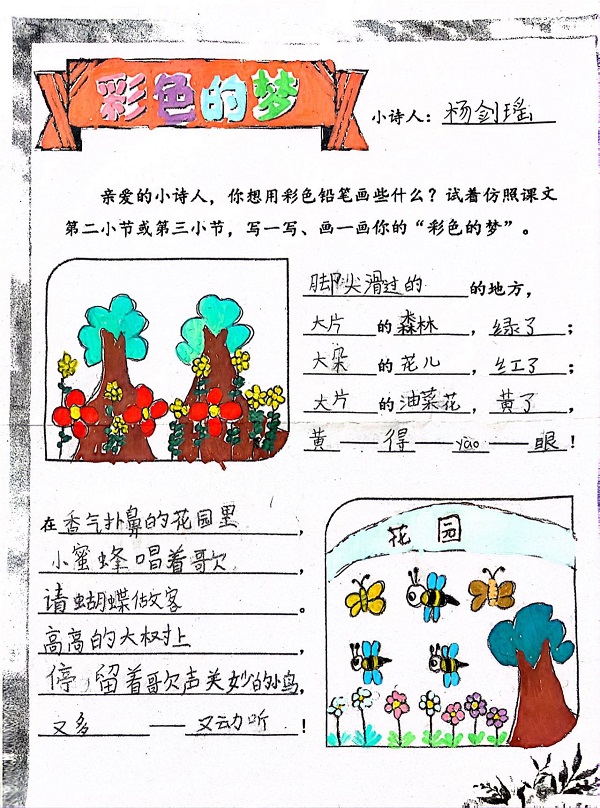 彩色的梦
小诗人：杨剑瑶
亲爱的小诗人，你想用彩色铅笔画些什么？试着仿照课文
第二小节或第三小节，写一写、画一画你的“彩色的梦”。
脚尖滑过的的地方，
大片的森林，绿了；
大朵的花儿，红了；
大片的油菜花，黄了，
黄——得——yào——眼！
在香气扑鼻的花园里，
小蜜蜂唱着歌，
请蝴蝶做客。
高高的大树上，
停，留着歌声美妙的小鸟，
又多——又动听！
花园